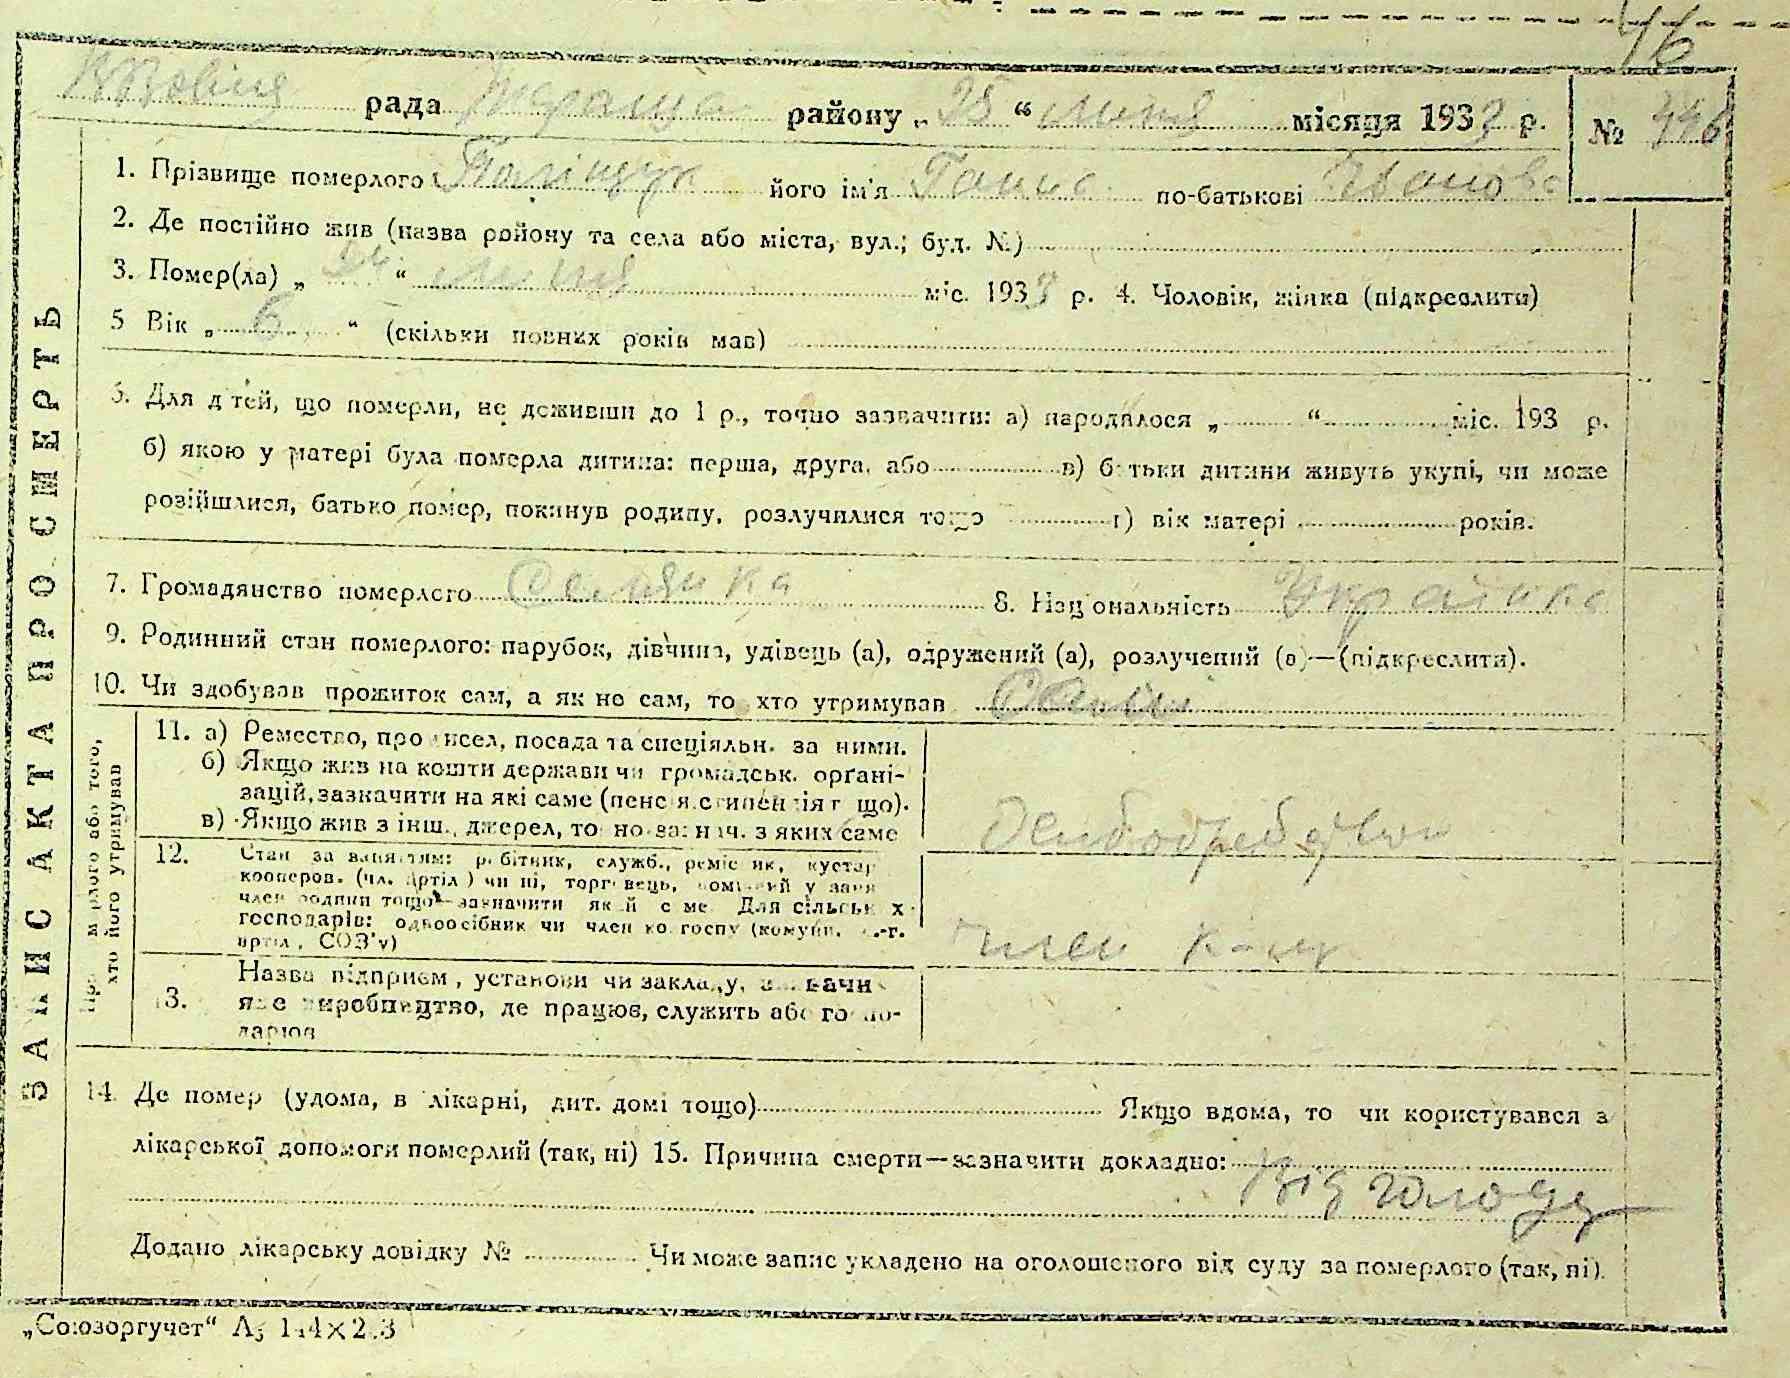 46
рада района „ 28 “ липня місяця 1933 р. № 446
1. Прізвище померлого Поліщук його ім'я Ганна по-батькові Іванова
2. Де постійно жив (назва району та села або міста, вул.; буд. №)
3. Помер(ла) „ 24 “ липня міс. 1933 р. 4. Чоловік, жінка (підкреслити)
5 Вік „ 6 “ (скільки повних років мав)
6. Для дітей, що померли, не доживши до 1 р., точно зазначити: а) народилося „ “ міс. 193 р.
б) якою у матері була померла дитина: перша, друга, або в) батьки дитини живуть укупі, чи може
розійшлися, батько помер, покинув родину, розлучилися тощо г) вік матері років.
7. Громадянство померлого Селянка 8. Національність Українка
9. Родинний стан померлого: парубок, дівчина, удівець (а), одружений (а), розлучений (а)—(підкреслити).
10. Чи здобував прожиток сам, а як не сам, то хто утримував
ЗАПИС АКТА ПРО СМЕРТЬ
Про померлого або того,
хто його утримував
11. а) Ремество, промисел, посада та спеціяльн. за ними.
б) Якщо жив на кошти держави чи громадськ. органі-
зацій, зазначити на які саме (пенсія, стипендія тощо).
в) Якщо жив з інш. джерел, то точно зазнач. з яких саме
12. Стан за заняттям: робітник, служб., ремісник, кустар
кооперов. (чл. артіл.) чи ні, торговець, у заня
член родини тощо—зазначити який саме. Для сільських
господарів: одноосібник чи член колгоспу (комуни, с.-г.
артіл., СОЗ'у)
член к-пу
13. Назва підприєм., установи чи закладу, зазначи
яке виробництво, де працює, служить або госпо-
дарює
14. Де помер (удома, в лікарні, дит. домі тощо) Якщо вдома, то чи користувався з
лікарської допомоги померлий (так, ні) 15. Причина смерти—зазначити докладно:
Від голоду
Додано лікарську довідку № Чи може запис укладено на оголошеного від суду за померлого (так, ні).
„Союзоргучет“